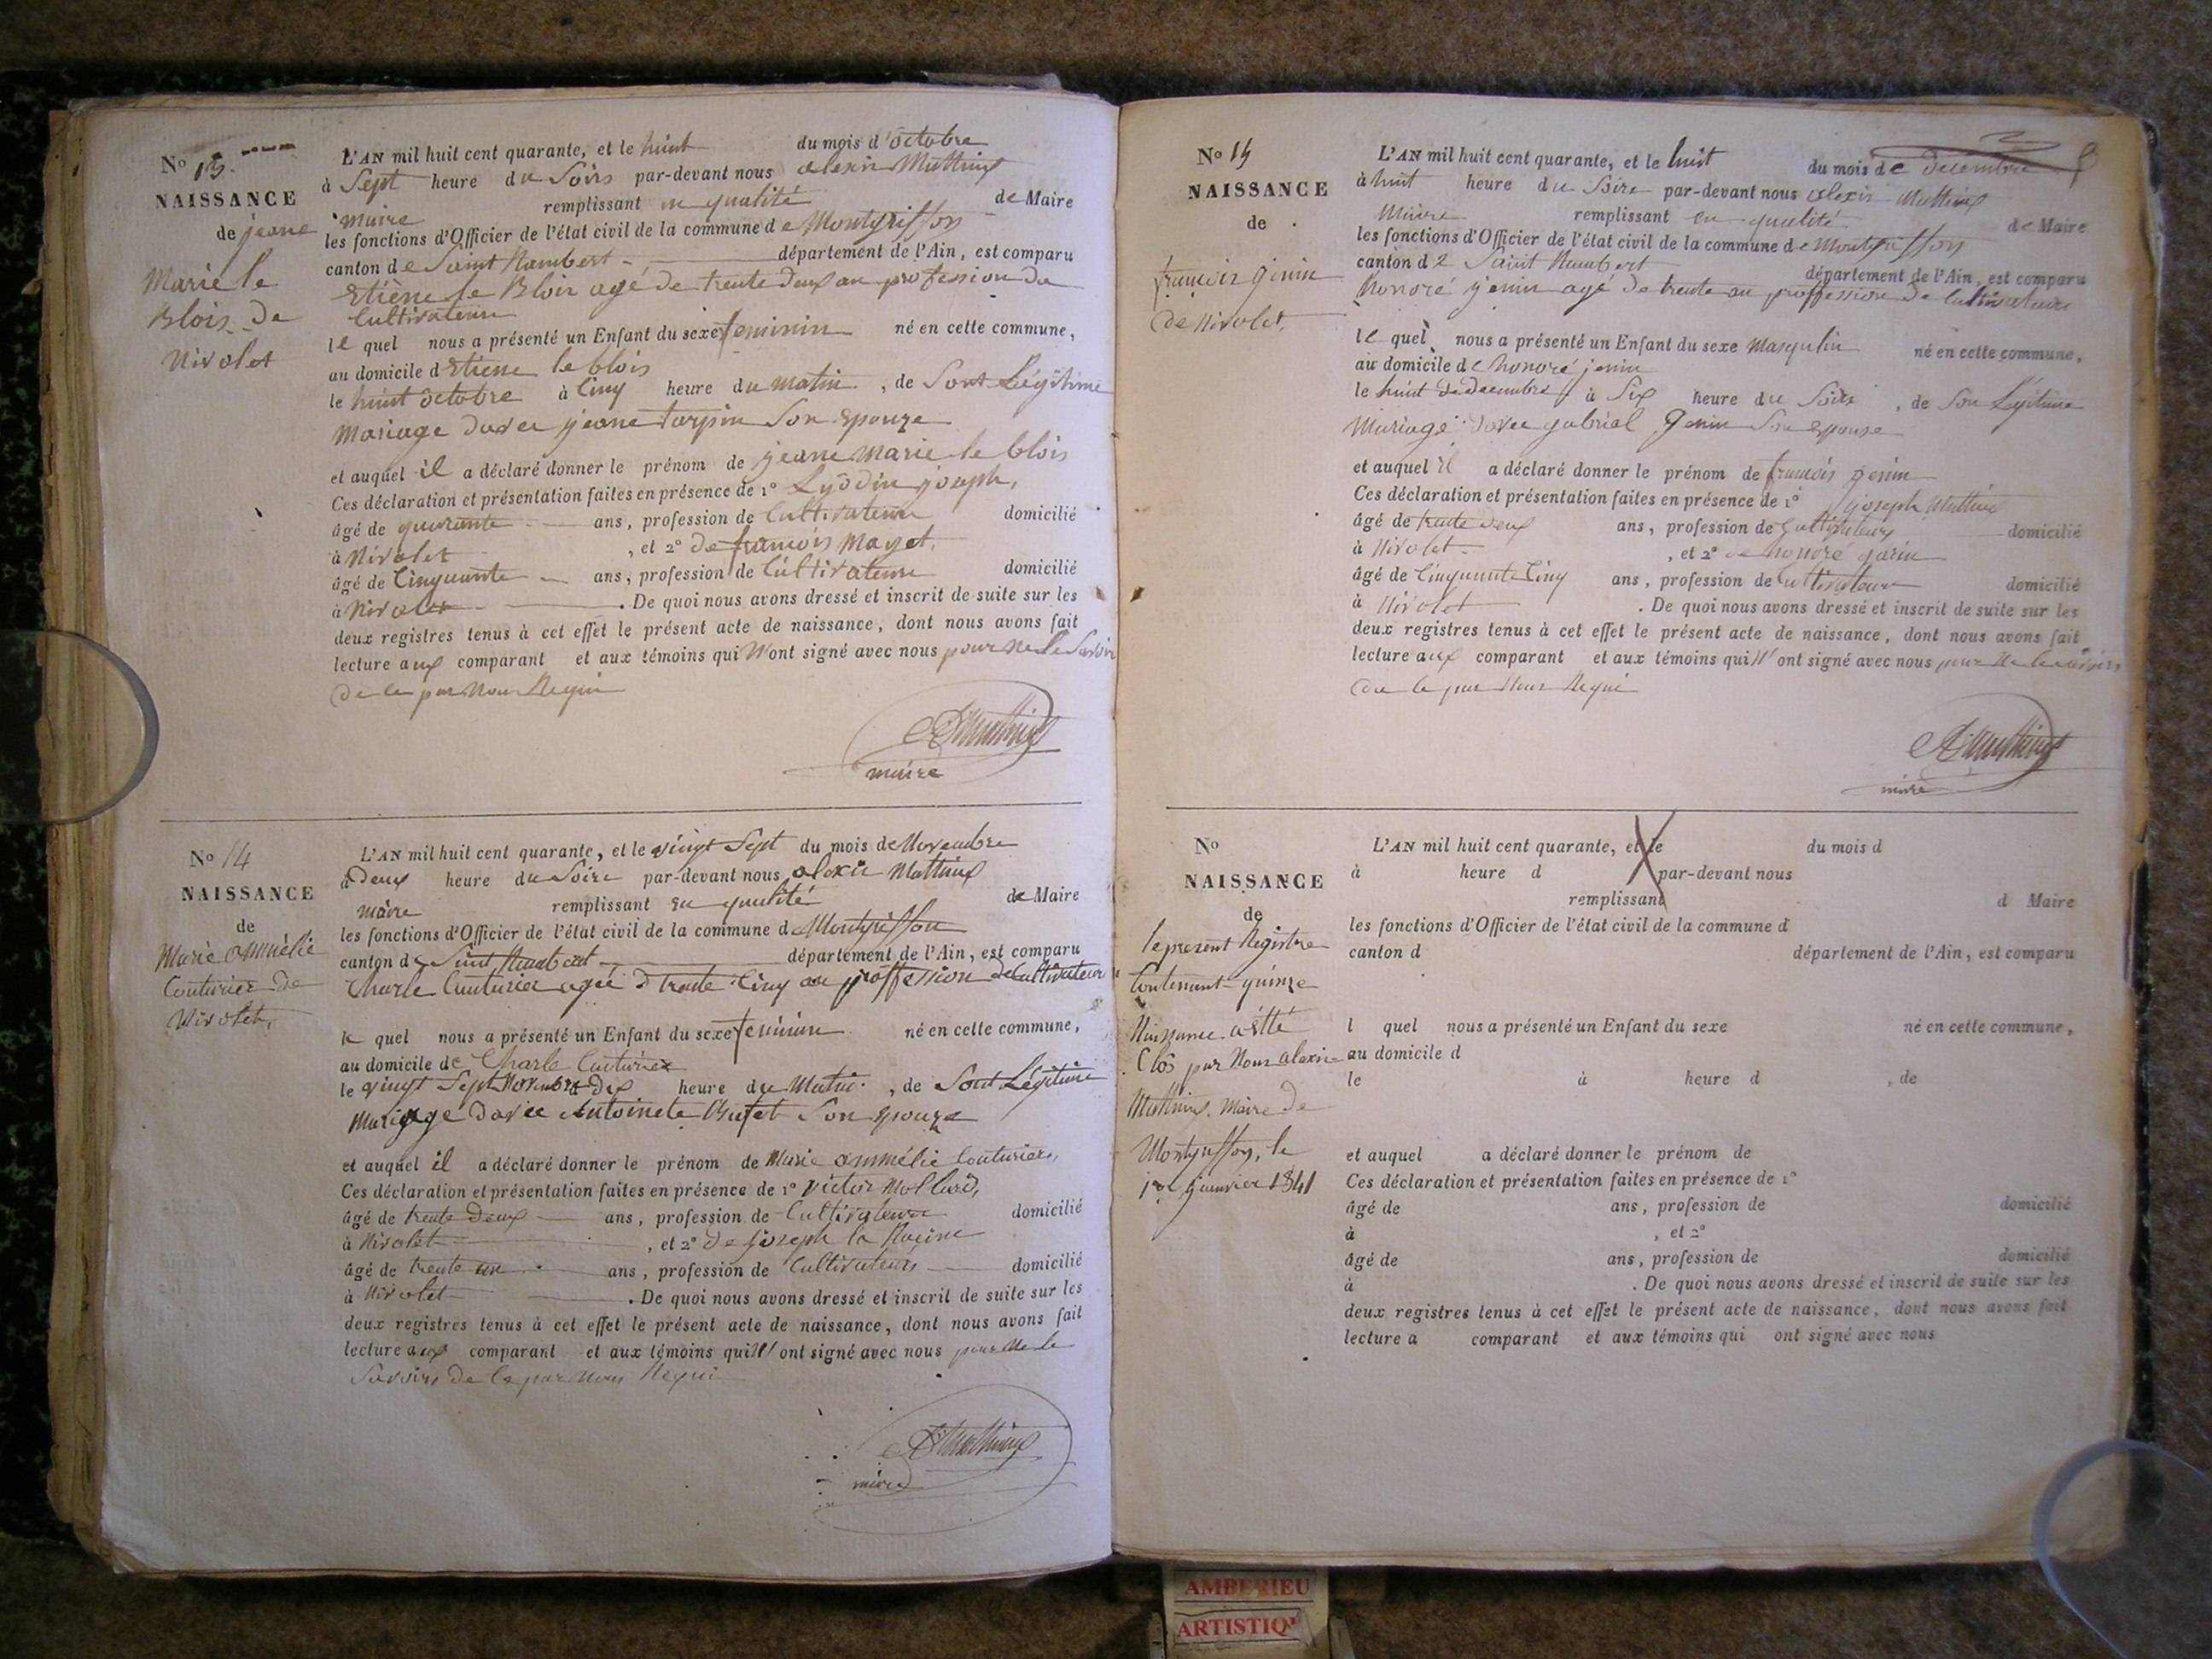 No 13.
NAISSANCE
de jeane
Marie le
Blois de
Nivolet
L'AN mil huit cent quarante, et le huit du mois d'octobre
à Sept heure du Soirs par-devant nous alexis Mathieux
maire remplissant en qualité de Maire
les fonctions d'Officier de l'état civil de la commune de Montgriffon
canton de Saint Rambert département de l'Ain, est comparu
Etiène le Blois agé de trente deux an profession de
Cultivateure
le quel nous a présenté un Enfant du sexe feminin né en cette commune,
au domicile d Etiene le blois
le huit octobre à Cinq heure du matin, de Sont Légitime
Mariage davec jeane tarpin Son Epouze
et auquel il a déclaré donner le prénom de jeane Marie le blois
Ces déclaration et présentation faites en présence de 1º Lyôdin joseph,
âgé de quarante ans, profession de Cultivateure domicilié
à Nivolet, et 2º de francois Mayet,
âgé de Cinquante ans, profession de Cultivateure domicilié
à Nivolet. De quoi nous avons dressé et inscrit de suite sur les
deux registres tenus à cet effet le présent acte de naissance, dont nous avons fait
lecture aux comparant et aux témoins qui N'ont signé avec nous pour ne le Savoir
de le par Nous Requi
AMathieux
maire
No 14
NAISSANCE
de
Marie ammélie
Couturier de
Nivolet,
L'AN mil huit cent quarante, et le vingt Sept du mois de Novembre
à deux heure du Soire par-devant nous alexis Mathieux
maire remplissant en qualité de Maire
les fonctions d'Officier de l'état civil de la commune de Montgriffon
canton de Saint Rambert département de l'Ain, est comparu
Charle Couturier agée d trente Cinq an proffession de Cultivateur
le quel nous a présenté un Enfant du sexe feminin né en cette commune,
au domicile de Charle Couturier
le vingt Sept Novembre à dix heure du Matin, de Sont Légitime
Mariage davec Antoinete Bufet Son Epouze
et auquel il a déclaré donner le prénom de Marie ammélie Couturier,
Ces déclaration et présentation faites en présence de 1º Victor Mollard,
âgé de trente deux ans, profession de Cultivateure domicilié
à Nivolet, et 2º de joseph la Racine
âgé de trente un ans, profession de Cultivateurs domicilié
à Nivolet. De quoi nous avons dressé et inscrit de suite sur les
deux registres tenus à cet effet le présent acte de naissance, dont nous avons fait
lecture aux comparant et aux témoins qui N'ont signé avec nous pour ne le
Savoirs de le par Nous Requi
AMathieux
maire
No 15
NAISSANCE
de
francois jenin
de Nivolet,
L'AN mil huit cent quarante, et le huit du mois de decembre
à huit heure du Soire par-devant nous alexis Mathieux
Maire remplissant en qualité de Maire
les fonctions d'Officier de l'état civil de la commune de Montgriffon
canton d2 Saint Rambert département de l'Ain, est comparu
honoré jenin agé de trente an proffession de Cultivateure
le quel nous a présenté un Enfant du sexe Masqulin né en cette commune,
au domicile de honoré jenin
le huit de decembre à Six heure du Soirs, de Son Légitime
Mariage davec gabriel Jenin Son Epouse
et auquel il a déclaré donner le prénom de francois jenin
Ces déclaration et présentation faites en présence de 1º joseph Mathieux
âgé de trente deux ans, profession de Cultivateurs domicilié
à Nivolet, et 2º de honoré garin
âgé de Cinquante Cinq ans, profession de Cultivateur domicilié
à Nivolet. De quoi nous avons dressé et inscrit de suite sur les
deux registres tenus à cet effet le présent acte de naissance, dont nous avons fait
lecture aux comparant et aux témoins qui N'ont signé avec nous pour Ne le savoirs
de le par Nous Requi
AMathieux
maire
No
NAISSANCE
de
le present Registre
Contenant quinze
Naissance a étté
Clos par Nous alexis
Mathieux Maire de
Montgriffon, le
1er janvier 1841
L'AN mil huit cent quarante, et le du mois d
à heure d par-devant nous
remplissant d Maire
les fonctions d'Officier de l'état civil de la commune d
canton d département de l'Ain, est comparu
l quel nous a présenté un Enfant du sexe né en cette commune,
au domicile d
le à heure d, de
et auquel a déclaré donner le prénom de
Ces déclaration et présentation faites en présence de 1º
âgé de ans, profession de domicilié
à, et 2º
âgé de ans, profession de domicilié
à. De quoi nous avons dressé et inscrit de suite sur les
deux registres tenus à cet effet le présent acte de naissance, dont nous avons fait
lecture a comparant et aux témoins qui ont signé avec nous
AMBERIEU
ARTISTIQU